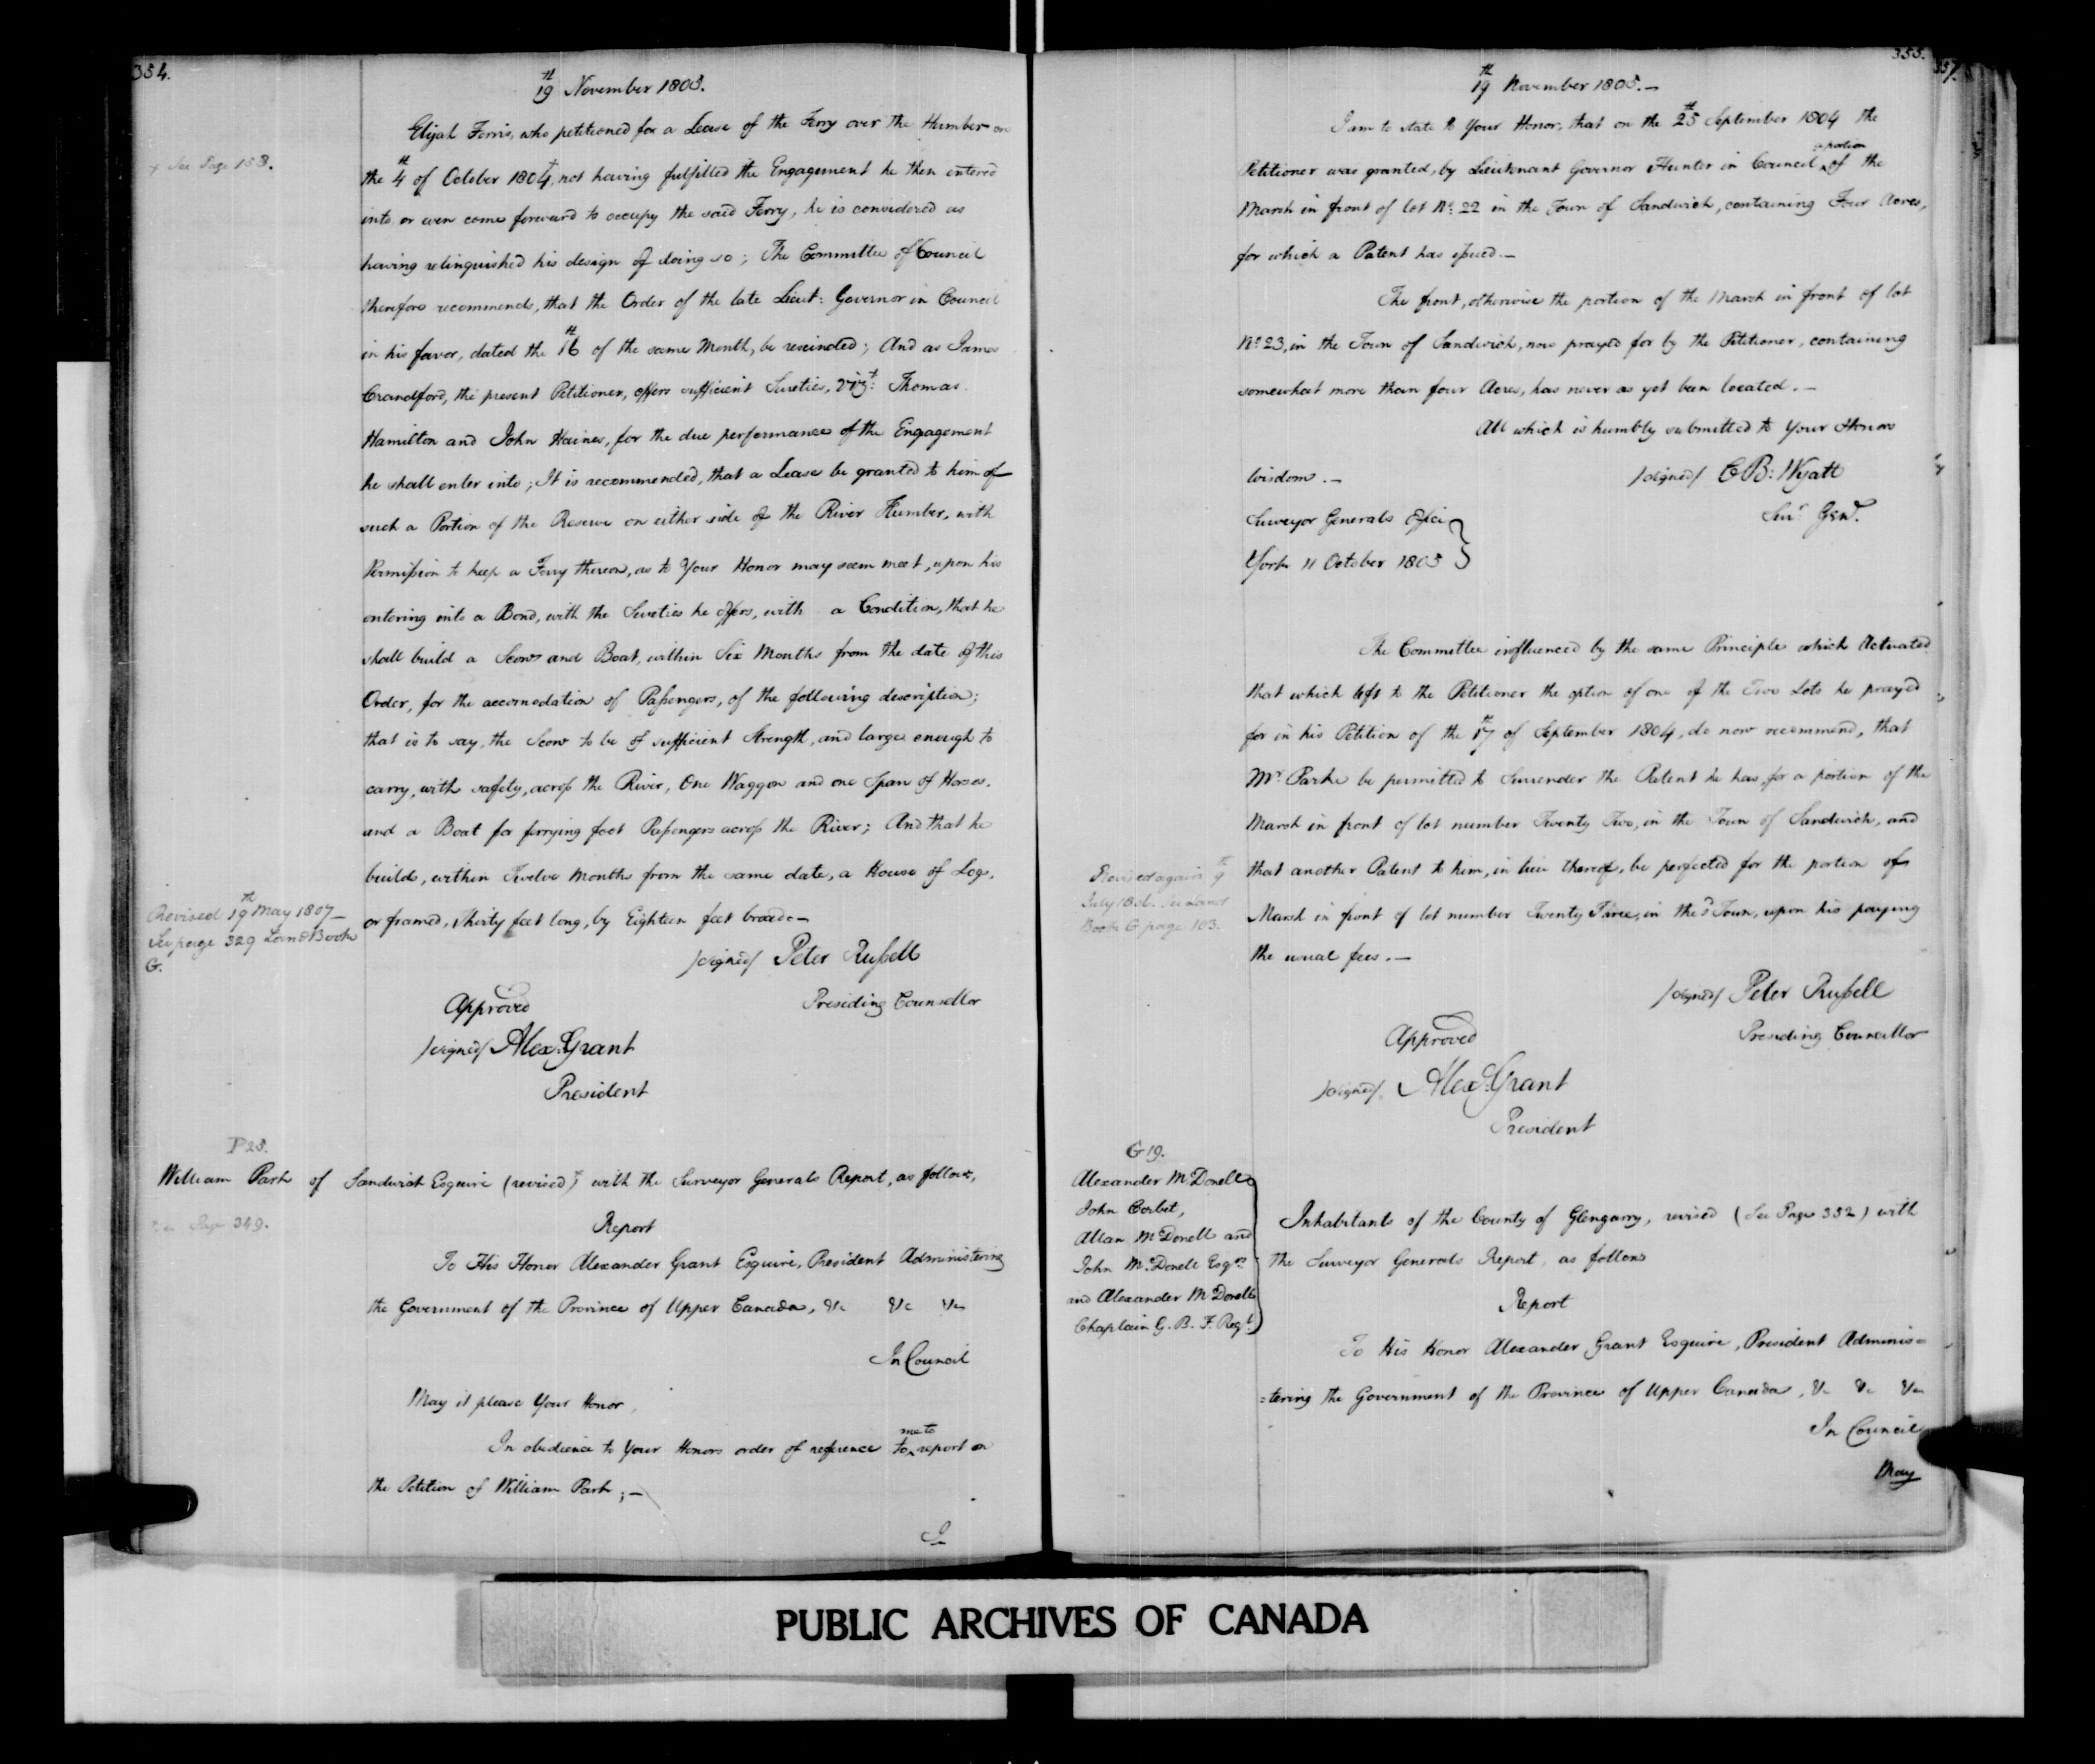 354.
19th November 1805.
Elijah Ferris, who petitioned for a Lease of the Ferry over the Humber on
+ See Page 153.
the 4th of October 1804,+ not having fulfilled the Engagement he then entered
into or even come forward to occupy the said Ferry, he is considered as
having relinquished his design of doing so; The Committee of Council
therefore recommends, that the Order of the late Lieut: Governor in Council
in his favor, dated the 16th of the same Month, be rescinded; And as James
Crandford, the present Petitioner, offers sufficient Sureties, Vizt: Thomas
Hamilton and John Haines, for the due performance of the Engagement
he shall enter into; It is recommended, that a Lease be granted to him of
such a Portion of the Reserve on either side of the River Humber, with
Permission to keep a Ferry thereon, as to Your Honor may seem meet, upon his
entering into a Bond, with the Sureties he offers, with a Condition, that he
shall build a Scow and Boat, within Six Months from the date of this
Order, for the accomodation of Passengers, of the following description;
that is to say, the Scow to be of sufficient Strength, and large enough to
carry, with safety, across the River, One Waggon and one Span of Horses,
and a Boat for ferrying foot Passengers across the River; And that he
builds, within Twelve Months from the same date, a House of Logs,
or framed, thirty feet long, by Eighteen feet broad.—
Revised 19th May 1807—
See page 329 Land Book
G.
/signed/ Peter Russell
Presiding Counsellor
Approved
/signed/ Alex: Grant
President
P 25.
William Park of Sandwich Esquire (revised)+ with the Surveyor Generals Report, as follows,
Page 349.
Report
To His Honor Alexander Grant Esquire, President Administering
the Government of the Province of Upper Canada, &c &c &c
In Council
May it please Your Honor,
In obedience to Your Honors order of reference to me to report on
the Petition of William Park;—
I
355.
357.
19th November 1805.—
I am to state to Your Honor, that on the 25th September 1804 the
Petitioner was granted, by Lieutenant Governor Hunter in Council a portion of the
Marsh in front of lot No. 22 in the Town of Sandwich, containing Four Acres,
for which a Patent has issued.—
The front, otherwise the portion of the Marsh in front of lot
No. 23, in the Town of Sandwich, now prayed for by the Petitioner, containing
somewhat more than four Acres, has never as yet been located.—
All which is humbly submitted to Your Honors
Wisdom.—
/signed/ C B: Wyatt
Survr Genl.
Surveyor Generals Office
York 11 October 1805
The Committee influenced by the same Principle which Actuated
that which left to the Petitioner the option of one of the Two Lots he prayed
for in his Petition of the 17th of September 1804, do now recommend, that
Mr. Parke be permitted to Surrender the Patent he has, for a portion of the
Marsh in front of lot number Twenty Two, in the Town of Sandwich, and
that another Patent to him, in lieu thereof, be perfected for the portion of
Marsh in front of lot number Twenty Three, in the sd Town, upon his paying
the usual fees.—
Revised again 9th
July 1806. See Land
Book G page 103.
/signed/ Peter Russell
Presiding Councillor
Approved
/signed/ Alex: Grant
President
G 19.
Alexander McDonell
John Corbet,
Allan McDonell and
John McDonell Esqrs
and Alexander McDonell
Chaplain G. B. F. Regt.
Inhabitants of the County of Glengarry, revised (See Page 332) with
the Surveyor Generals Report, as follows
Report
To His Honor Alexander Grant Esquire, President Adminis=
=tering the Government of the Province of Upper Canada, &c &c &c
In Council
May
PUBLIC ARCHIVES OF CANADA